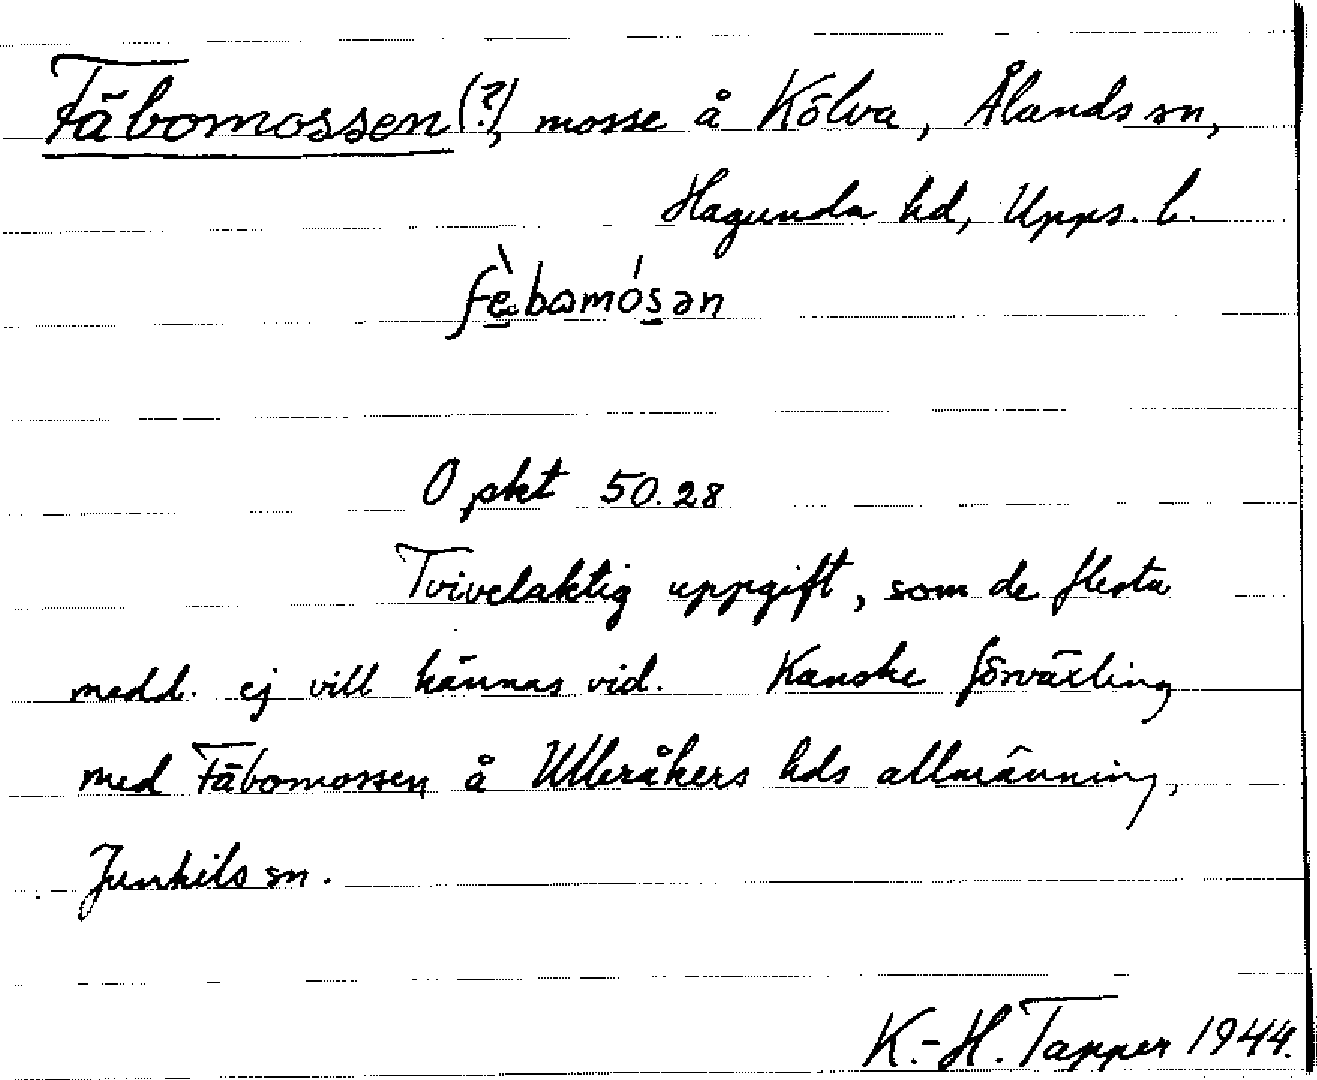 Fäbomossen (?), mosse å Kölva, Ålands sn,
Hagunda hd, Upps. l.
fὲbωmósən
O pkt 50.28
Tvivelaktig uppgift, som de flesta
medd. ej vill kännas vid. Kanske förväxling
med Fäbomossen å Ulleråkers hds allmänning,
Jumkils sn.
K.-H. Tapper 1944.